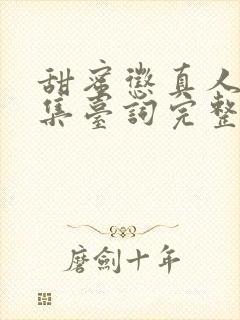 甜蜜懲真人
集臺詞完整
磨劍十年